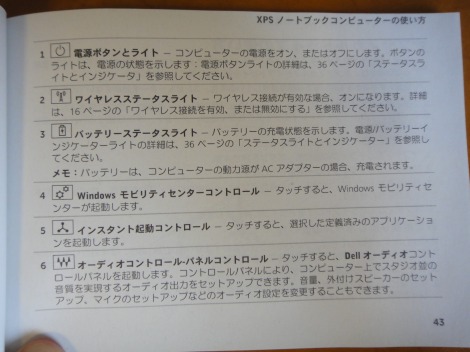 XPS ノートブックコンピューターの使い方
1 電源ボタンとライト – コンピューターの電源をオン、またはオフにします。ボタンの
ライトは、電源の状態を示します：電源ボタンライトの詳細は、36 ページの「ステータスラ
イトとインジケータ」を参照してください。
2 ワイヤレスステータスライト – ワイヤレス接続が有効な場合、オンになります。詳細
は、16 ページの「ワイヤレス接続を有効、または無効にする」を参照してください。
3 バッテリーステータスライト – バッテリーの充電状態を示します。電源/バッテリーイ
ンジケーターライトの詳細は、36 ページの「ステータスライトとインジケータ」を参照し
てください。
メモ：バッテリーは、コンピューターの動力源が AC アダプターの場合、充電されます。
4 Windows モビリティセンターコントロール – タッチすると、Windows モビリティセ
ンターが起動します。
5 インスタント起動コントロール – タッチすると、選択した定義済みのアプリケーショ
ンを起動します。
6 オーディオコントロール-パネルコントロール – タッチすると、Dell オーディオコント
ロールパネルを起動します。コントロールパネルにより、コンピューター上でスタジオ並の
音質を実現するオーディオ出力をセットアップできます。音量、外付けスピーカーのセット
アップ、マイクのセットアップなどのオーディオ設定を変更することもできます。
43